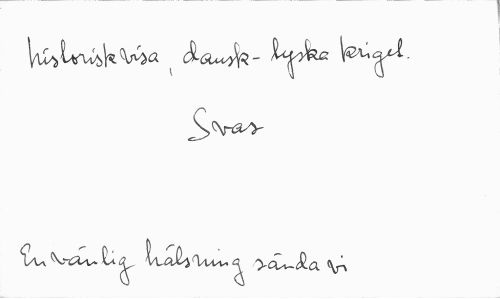 historisk visa, dansk-tyska kriget.
Svar
En vänlig hälsning sända vi